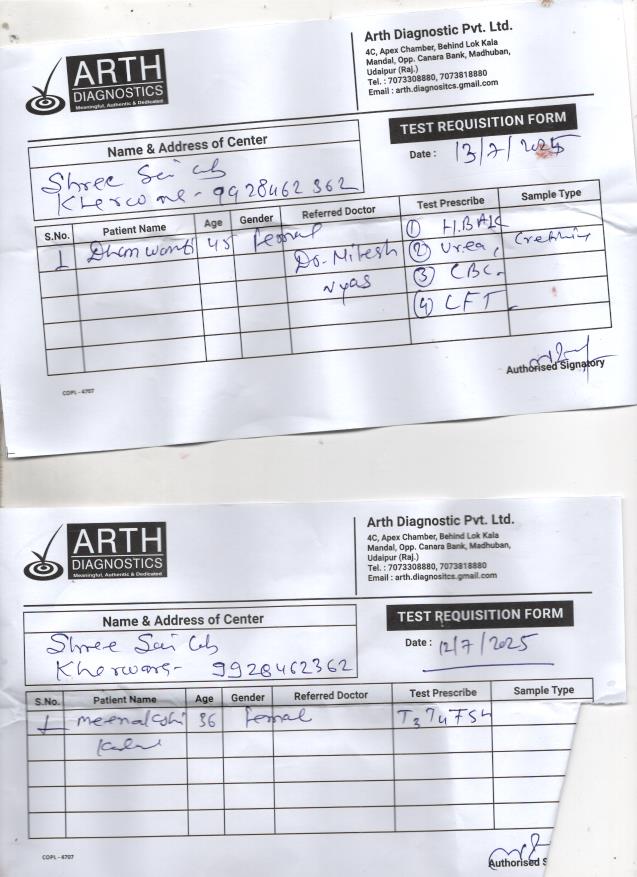 ARTH
DIAGNOSTICS
Meaningful, Authentic & Dedicated
Arth Diagnostic Pvt. Ltd.
4C, Apex Chamber, Behind Lok Kala
Mandal, Opp. Canara Bank, Madhuban,
Udaipur (Raj.)
Tel. : 7073308880, 7073818880
Email : arth.diagnositcs.gmail.com
TEST REQUISITION FORM
Date : 13/7/2025
Name & Address of Center
Shree Sai Lab
9928462362
S.No. Patient Name Age Gender Referred Doctor Test Prescribe Sample Type
1 Dhanwanti 45 femal Dr. Mitesh ① H.BA1C
Vyas ② Urea,
③ CBC
④ LFT
Authorised Signatory
COPL - 4707
ARTH
DIAGNOSTICS
Meaningful, Authentic & Dedicated
Arth Diagnostic Pvt. Ltd.
4C, Apex Chamber, Behind Lok Kala
Mandal, Opp. Canara Bank, Madhuban,
Udaipur (Raj.)
Tel. : 7073308880, 7073818880
Email : arth.diagnositcs.gmail.com
TEST REQUISITION FORM
Date : 12/7/2025
Name & Address of Center
Shree Sai Lab
Kherwara- 9928462362
S.No. Patient Name Age Gender Referred Doctor Test Prescribe Sample Type
1 meenakshi 36 femal T3T4TSH
Authorised S
COPL - 4707